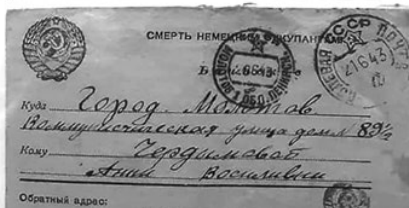 СМЕРТЬ НЕМЕЦКИМ ОККУПАНТАМ
СССР ПОЧТА
21643
Куда Город. Молотов
Коммунистическая улица дом № 89½
Кому Чердымовой
Анни Василивни
Обратный адрес: